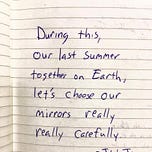 During this,
our last summer
together on Earth,
let's choose our
mirrors really
really carefully.